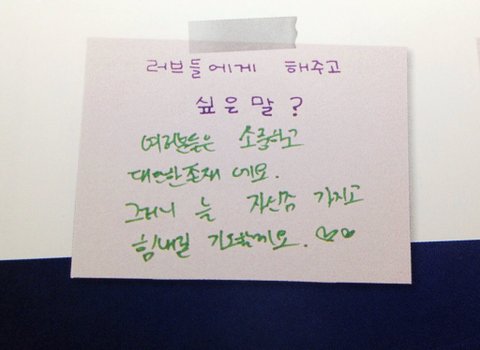 러브들에게 해주고
싶은말?
여러분들은 소중하고
대단한존재 예요.
그러니 늘 자신감 가지고
힘내길 기도할께요. ♡♡